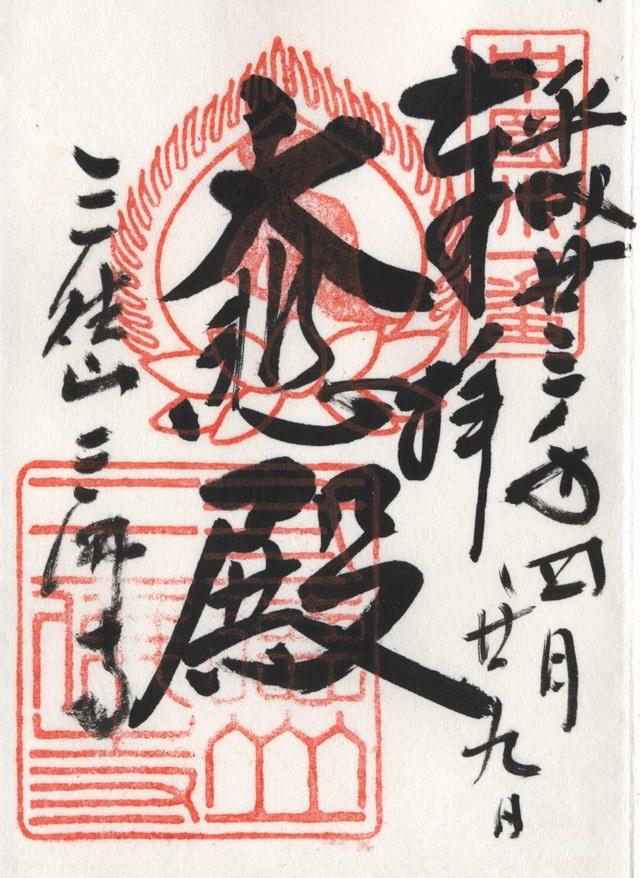 中國卅一番
平成廿三年四月廿九日
奉拝
大悲殿
三徳山 三佛寺